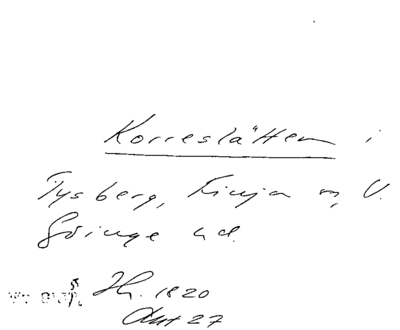 Korreslätten i
Tysberg, Finja m, V.
Göinge hd.
Ih. 1820
Akt 27